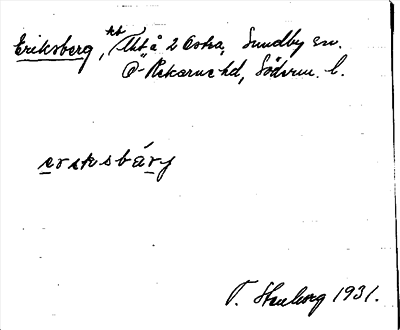 Eriksberg, ht Tht å 2 Ostra, Sundby sn.
Ö-Rekarne hd, Söderm. l.
ersksbärj
T. Stenborg 1931.